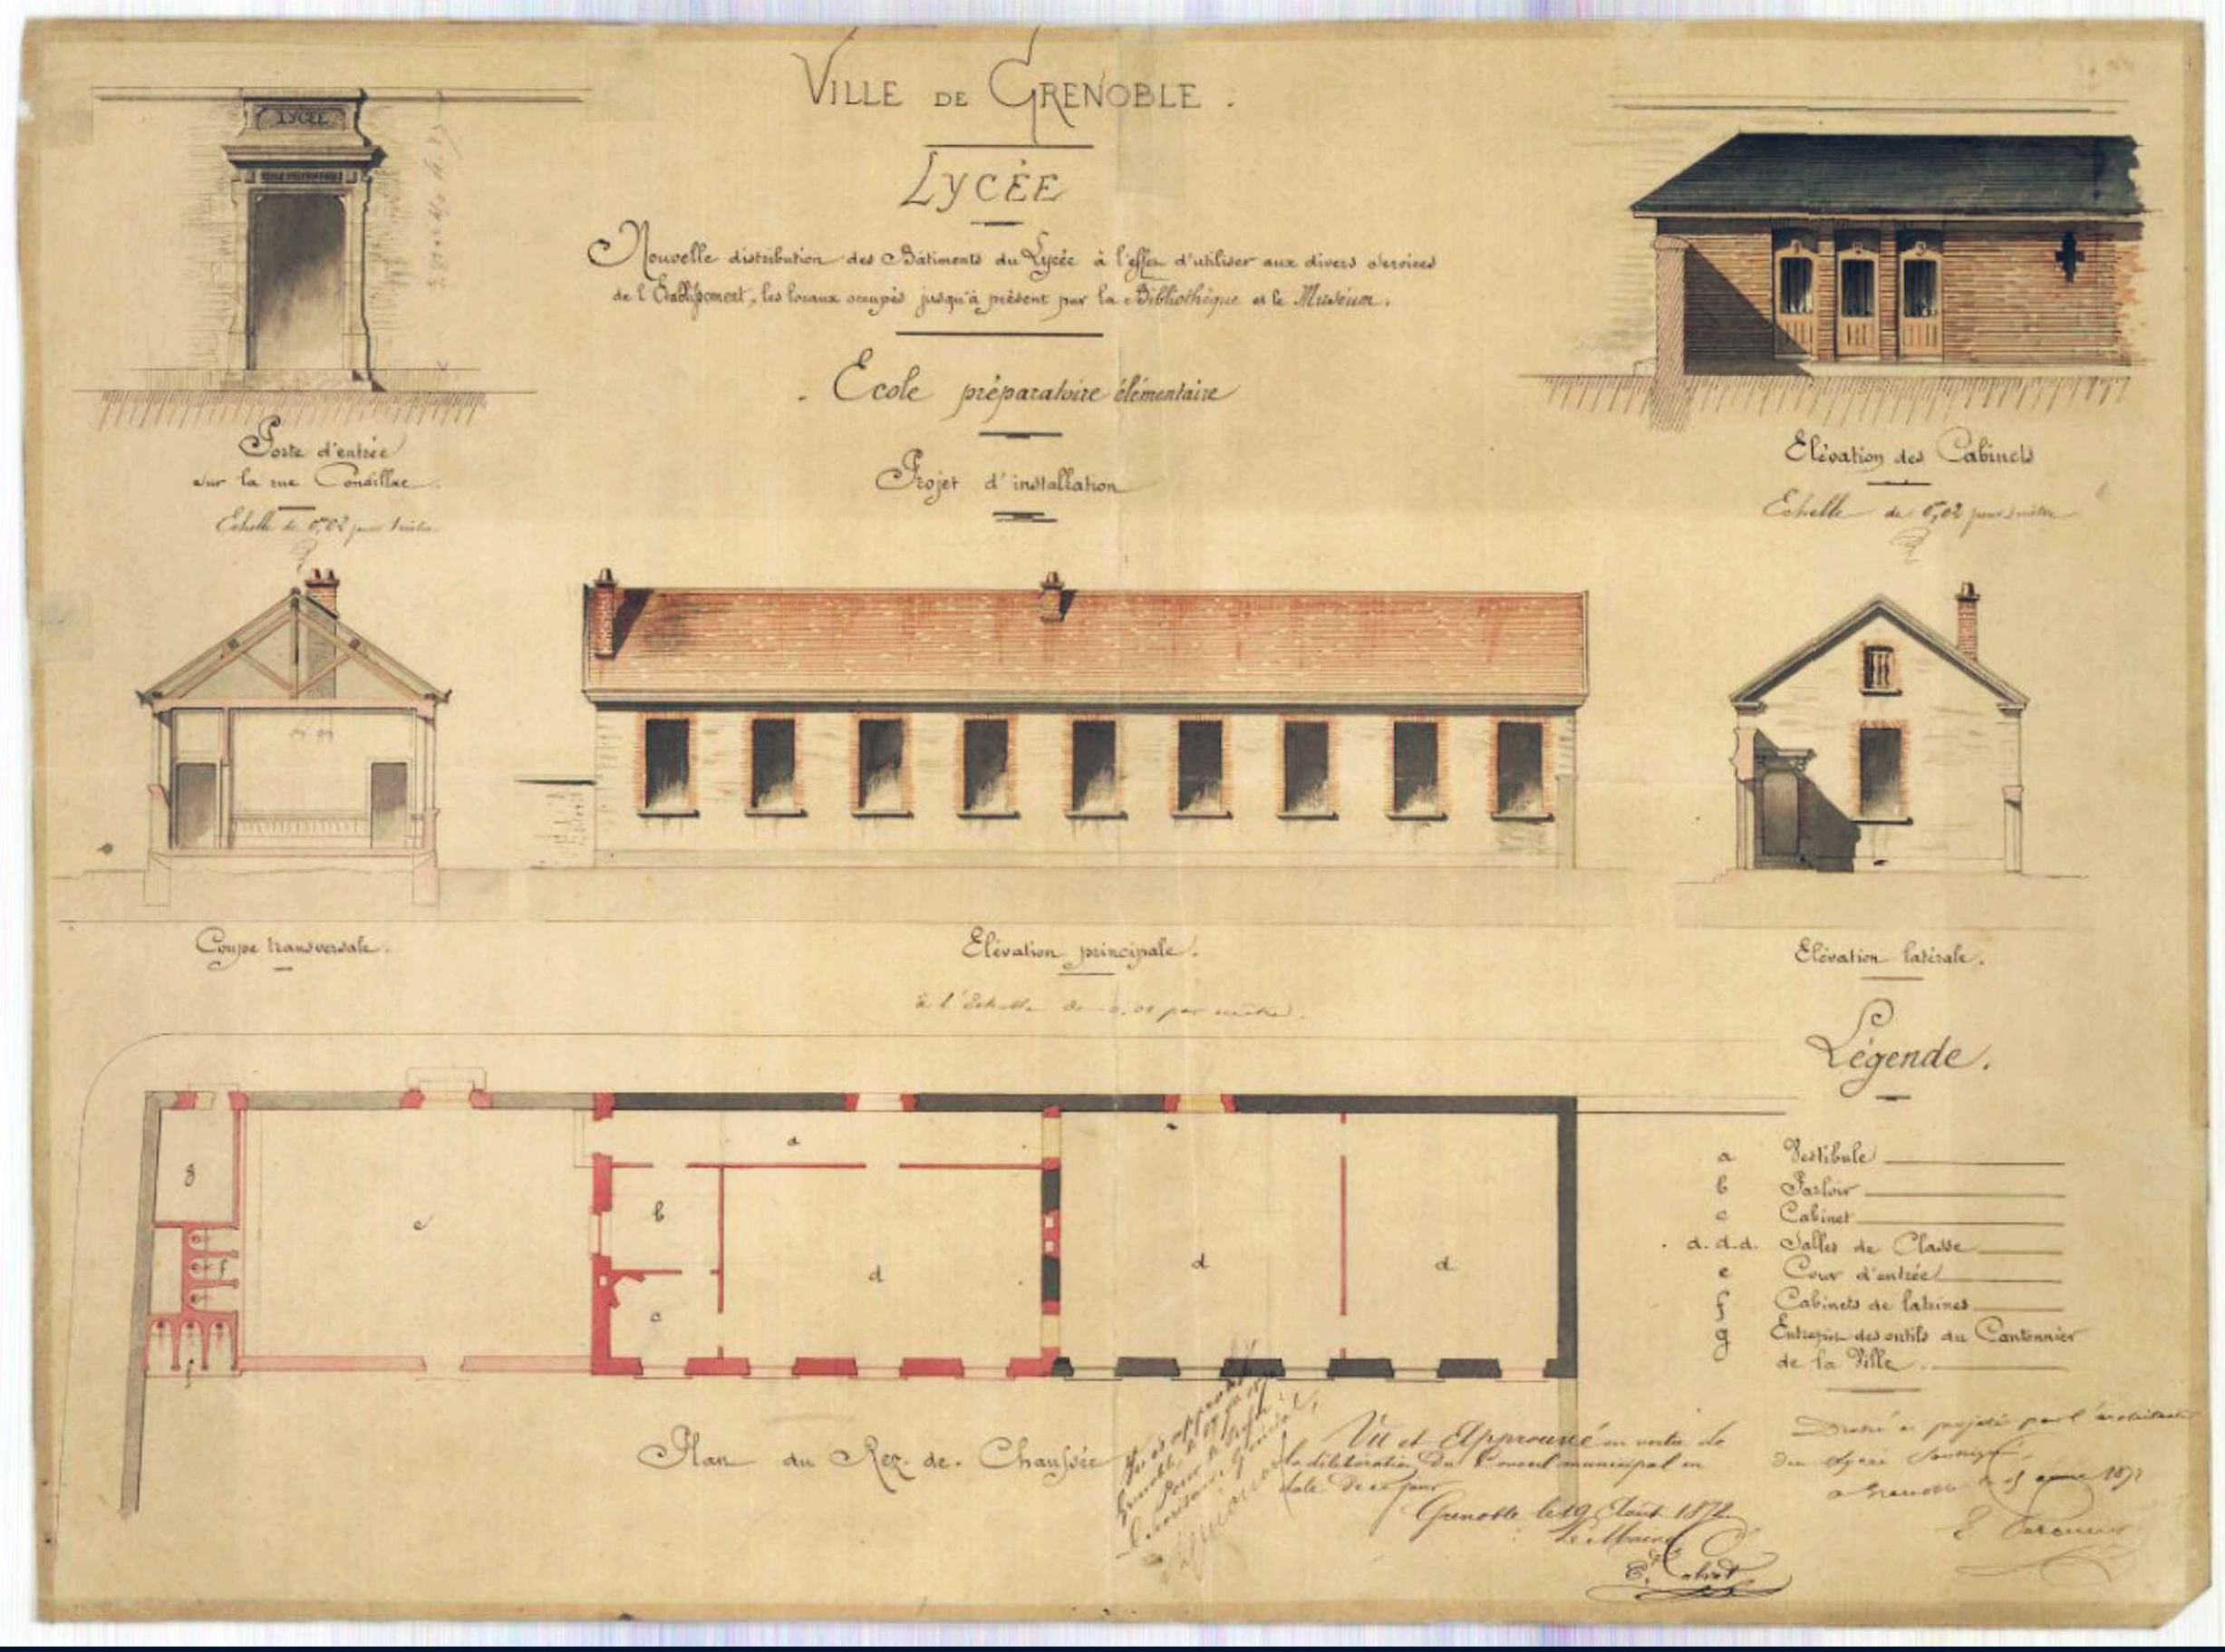 VILLE DE GRENOBLE.
LYCÉE
Nouvelle distribution des Bâtiments du Lycée à l'effet d'utiliser aux divers services
de l'Etablissement, les locaux occupés jusqu'à présent par la Bibliothèque et le Muséum.
Ecole préparatoire élémentaire
Projet d'installation
LYCÉE
Porte d'entrée
sur la rue Condillac.
Echelle de 0,02 pour 1 mètre
Elévation des Cabinets
Echelle de 0,02 pour 1 mètre
Coupe transversale.
Elévation principale.
Elévation latérale.
à l'Echelle de 0,01 par mètre.
Légende.
a Vestibule
b Parloir
c Cabinet
d.d.d. Salles de Classe
e Cour d'entrée
f Cabinets de latrines
g Entrepôt des outils du Cantonnier
de la Ville.
g
e
f
f
a
b
c
d
d
d
Plan du Rez-de-Chaussée
Vu et approuvé
Grenoble, le
Pour le Préfet:
Le Secrétaire Général,
Vu et Approuvé en vertu de
la délibération du Conseil municipal en
date de ce jour
Grenoble le 19 Août 1872
Le Maire
E. Calvat
Dressé et projeté par l'architecte
du Lycée soussigné,
a Grenoble le 15 1872